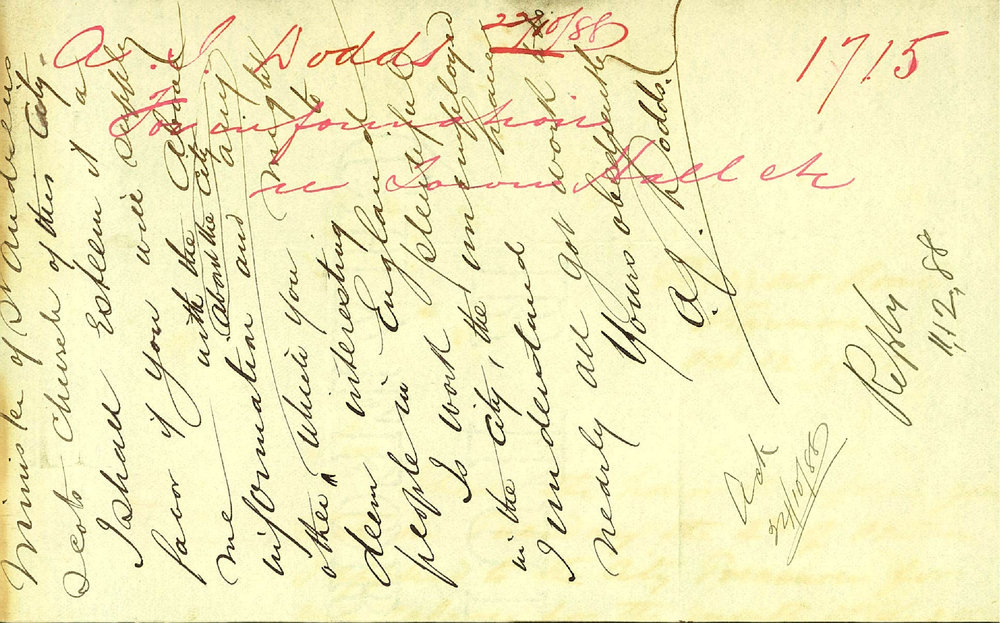 A. J. Dodds 22/10/88
1715
For information
re Town Hall etc
Minister of St Andrews
Scots Church of this City.
I shall Esteem it a
favor if you will supply
me with the
about the City
information and any
other information which you might
deem interesting to
people in England
Is work plentiful
in the City, the unemployed
I understand have
nearly all got work
Yours obediently
A. J. Dodds.
Reply
11/12/88
Ack
22/10/88